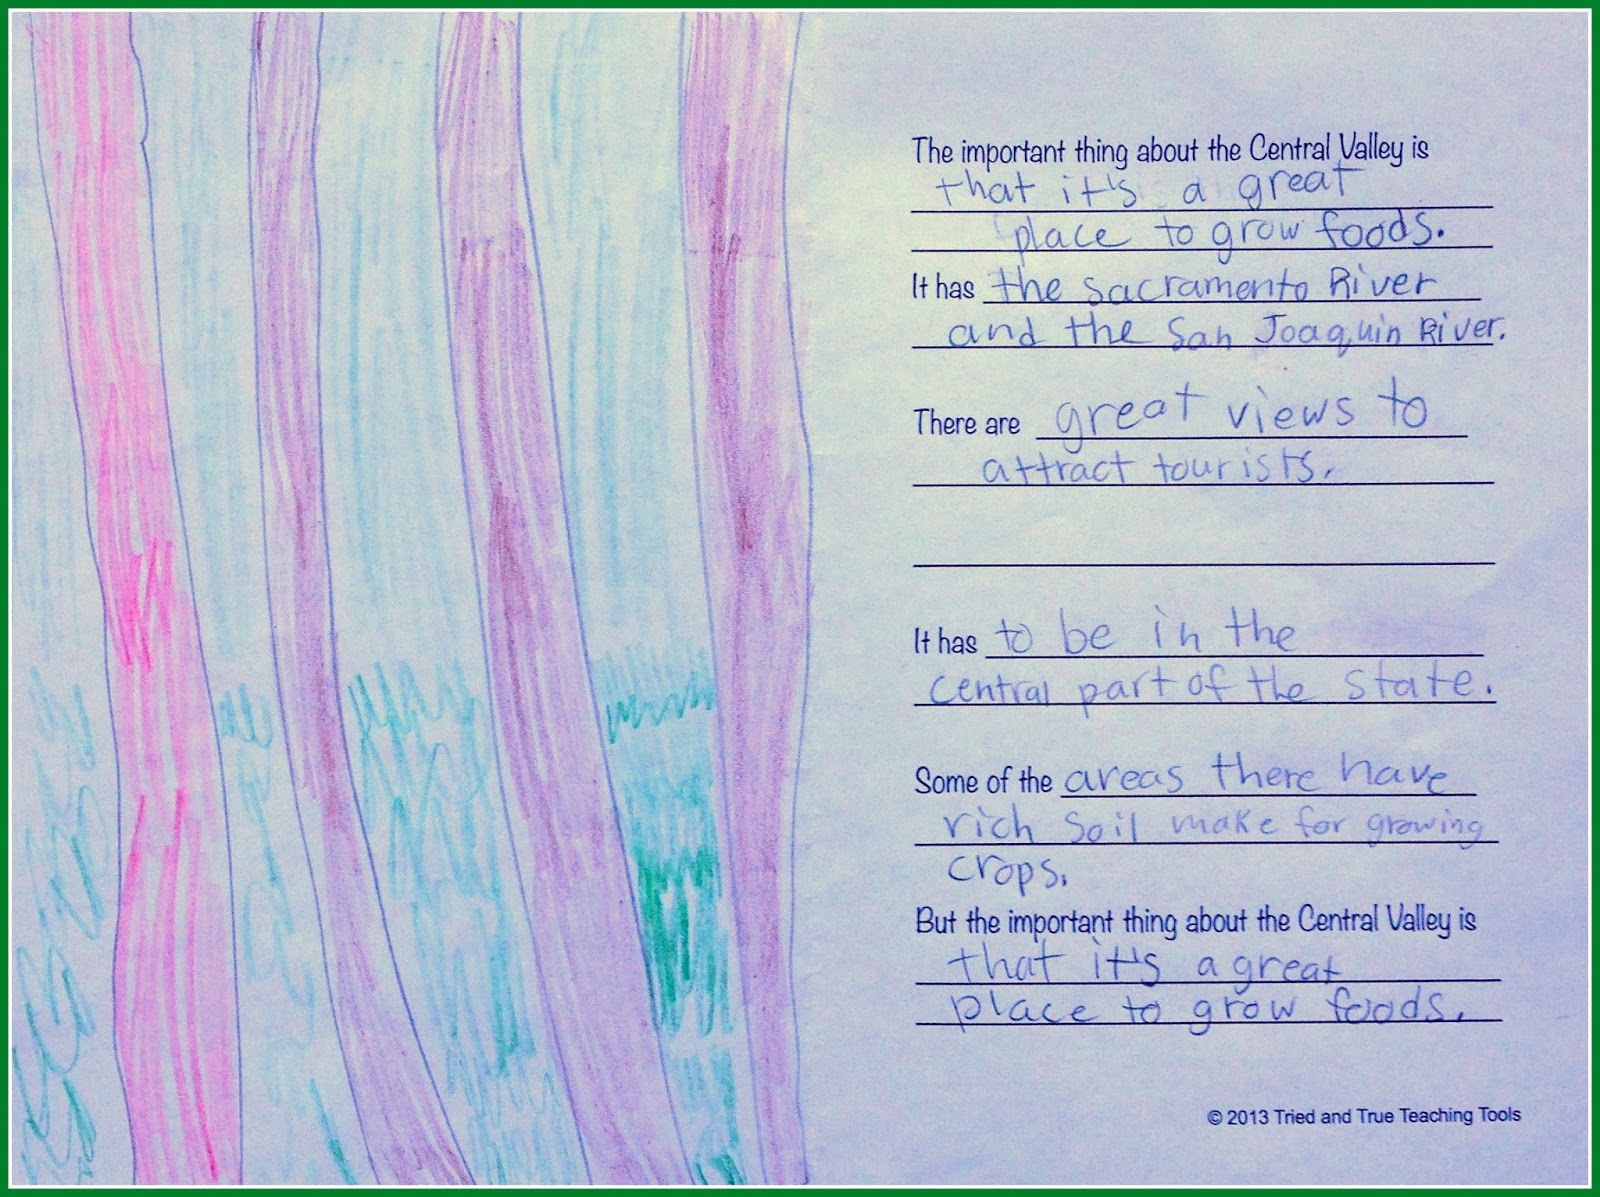 The important thing about the Central Valley is
that it's a great
place to grow foods.
It has the Sacramento River
and the San Joaquin River.
There are great views to
attract tourists.
It has to be in the
central part of the state.
Some of the areas there have
rich soil make for growing
crops.
But the important thing about the Central Valley is
that it's a great
place to grow foods.
© 2013 Tried and True Teaching Tools